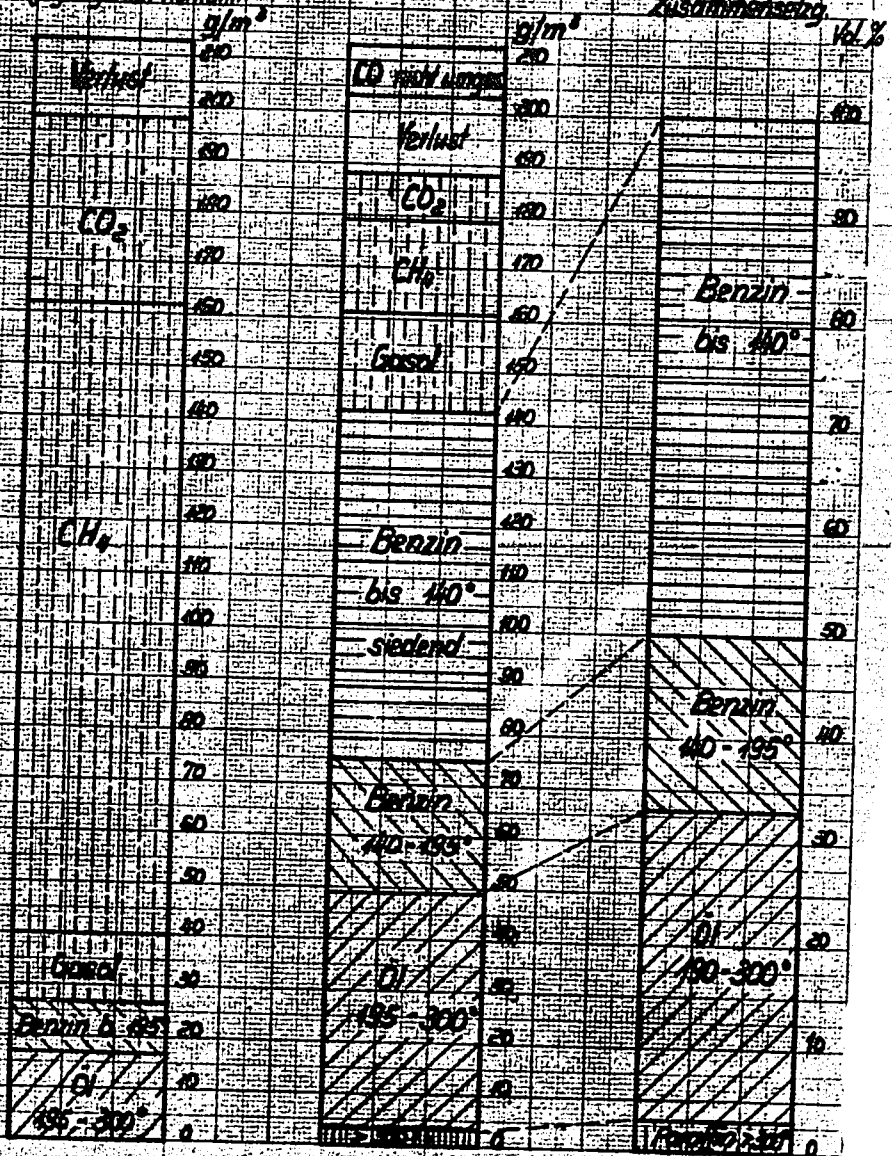 Zusammensetzg.
g/m³
g/m³
Vol. %
Verlust
CO₂
CH₄
Gasol
Benzin b. 195°
Öl
195-300°
210
200
190
180
170
160
150
140
130
120
110
100
90
80
70
60
50
40
30
20
10
0
CO nicht umges.
Verlust
CO₂
CH₄
Gasol
Benzin
bis 140°
siedend
Benzin
140-195°
Öl
195-300°
210
200
190
180
170
160
150
140
130
120
110
100
90
80
70
60
50
40
30
20
10
0
Benzin
bis 140°
Benzin
140-195°
Öl
190-300°
Paraffin >300°
100
90
80
70
60
50
40
30
20
10
0